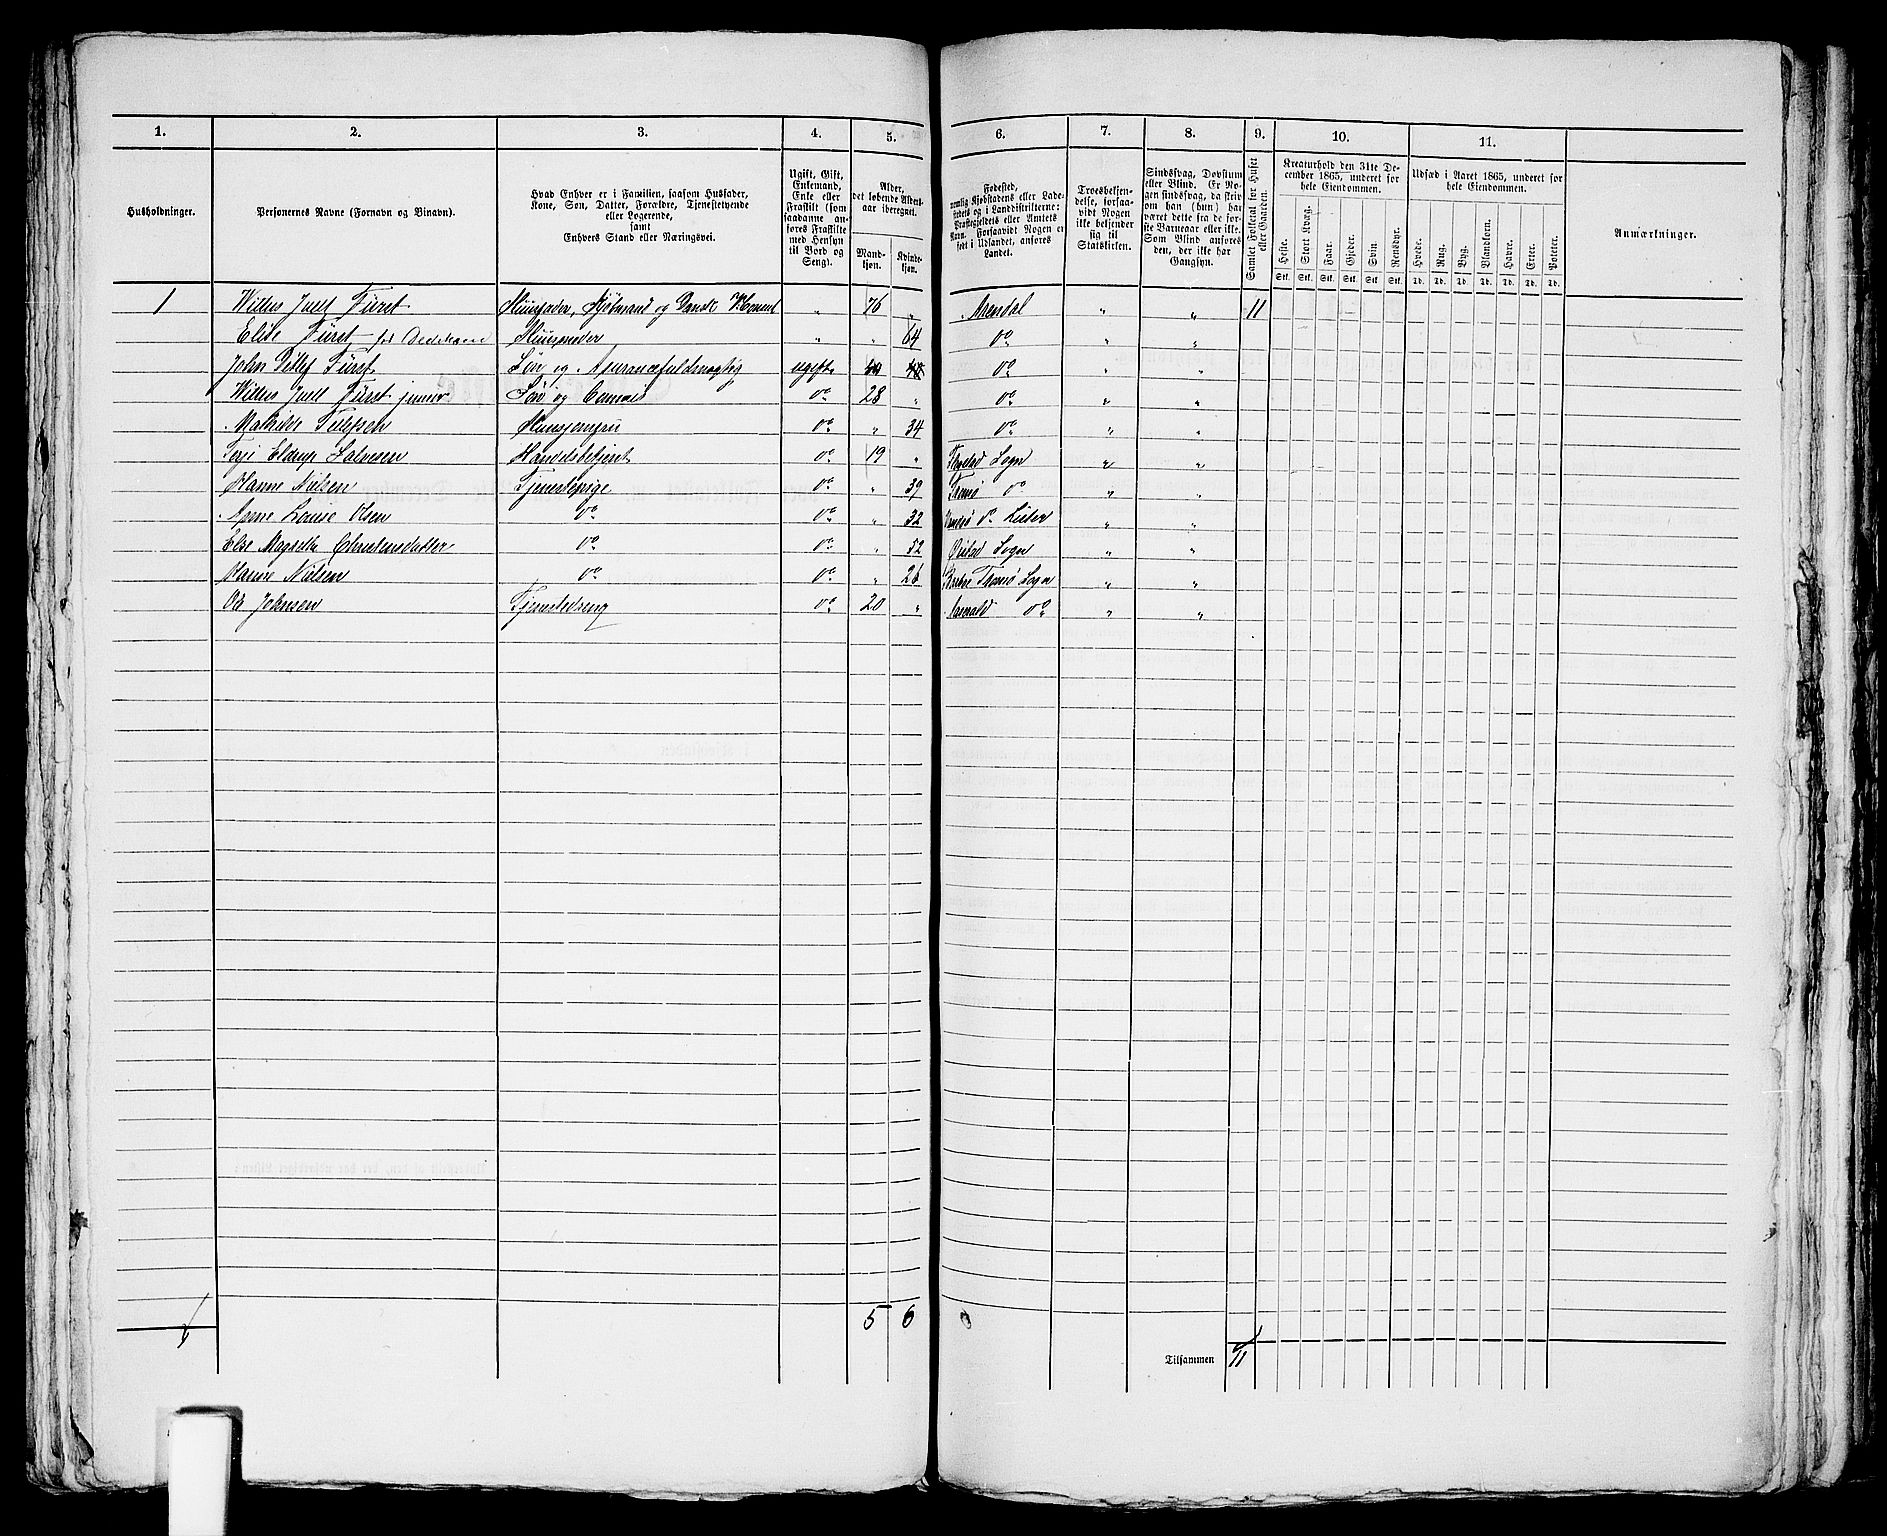 1. 2. 3. 4. 5. 6. 7. 8. 9. 10. 11.
Husholdninger.
Personernes Navne (Fornavn og Binavn).
Hvad Enhver er i Familien, saasom Husfader,
Kone, Søn, Datter, Forældre, Tjenestetyende
eller Logerende,
samt
Enhvers Stand eller Næringsvei.
Ugift, Gift,
Enkemand,
Enke eller
Fraskilt (som
saadanne an-
føres Fraskilte
med Hensyn
til Bord og
Seng).
Alder,
det løbende Alders-
aar iberegnet.
Mand-
kjøn.
Kvinde-
kjøn.
Fødested,
nemlig Kjøbstadens eller Lade-
stedets og i Landdistrikterne:
Præstegjeldets eller Amtets
Navn. Forsaavidt Nogen er
født i Udlandet, anføres
Landet.
Troesbekjen-
delse, forsaa-
vidt Nogen
ikke bekjender
sig til
Statskirken.
Sindssvag, Døvstum
eller Blind. Er No-
gen sindssvag, da skriv
om han (hun) har
været dette fra de før-
ste Barneaar eller ikke.
Som Blind anføres
den, der ikke har
Gangsyn.
Samlet Folketal for Huset
eller Gaarden.
Kreaturhold den 31te De-
cember 1865, underet for
hele Eiendommen.
Heste. Stort Kvæg. Faar. Gjeder. Svin. Rensdyr.
Stk. Stk. Stk. Stk. Stk. Stk.
Udsæd i Aaret 1865, underet for
hele Eiendommen.
Hvede. Rug. Byg. Blandkorn. Havre. Erter. Poteter.
Td. Td. Td. Td. Td. Td. Td.
Anmærkninger.
1 Willus Juell Fürst Huusfader, Kjøbmand og Dansk " 76 " Arendal " " 11
Elise Fürst Huusmoder " " 64 do " "
John Ditlef Fürst Søn og ugift do " "
Willus Juell Fürst junior Søn og do 28 " do " "
Mathilde Tellefsen Huusjomfru do " 34 do " "
Terje Halvorsen Handelsbetjent do 19 " Sogn " "
Hanne Nielsen Tjenestepige do " 39 Tromø do " "
Anne Louise Olsen do do " 32 do Lister " "
Else Magrethe Christensdatter do do " 52 Øiestad Sogn " "
Hanne Nielsen do do " 26 Tromø Sogn " "
Ole Johnsen Tjenestedreng do 20 " do " "
5 6
Tilsammen 11